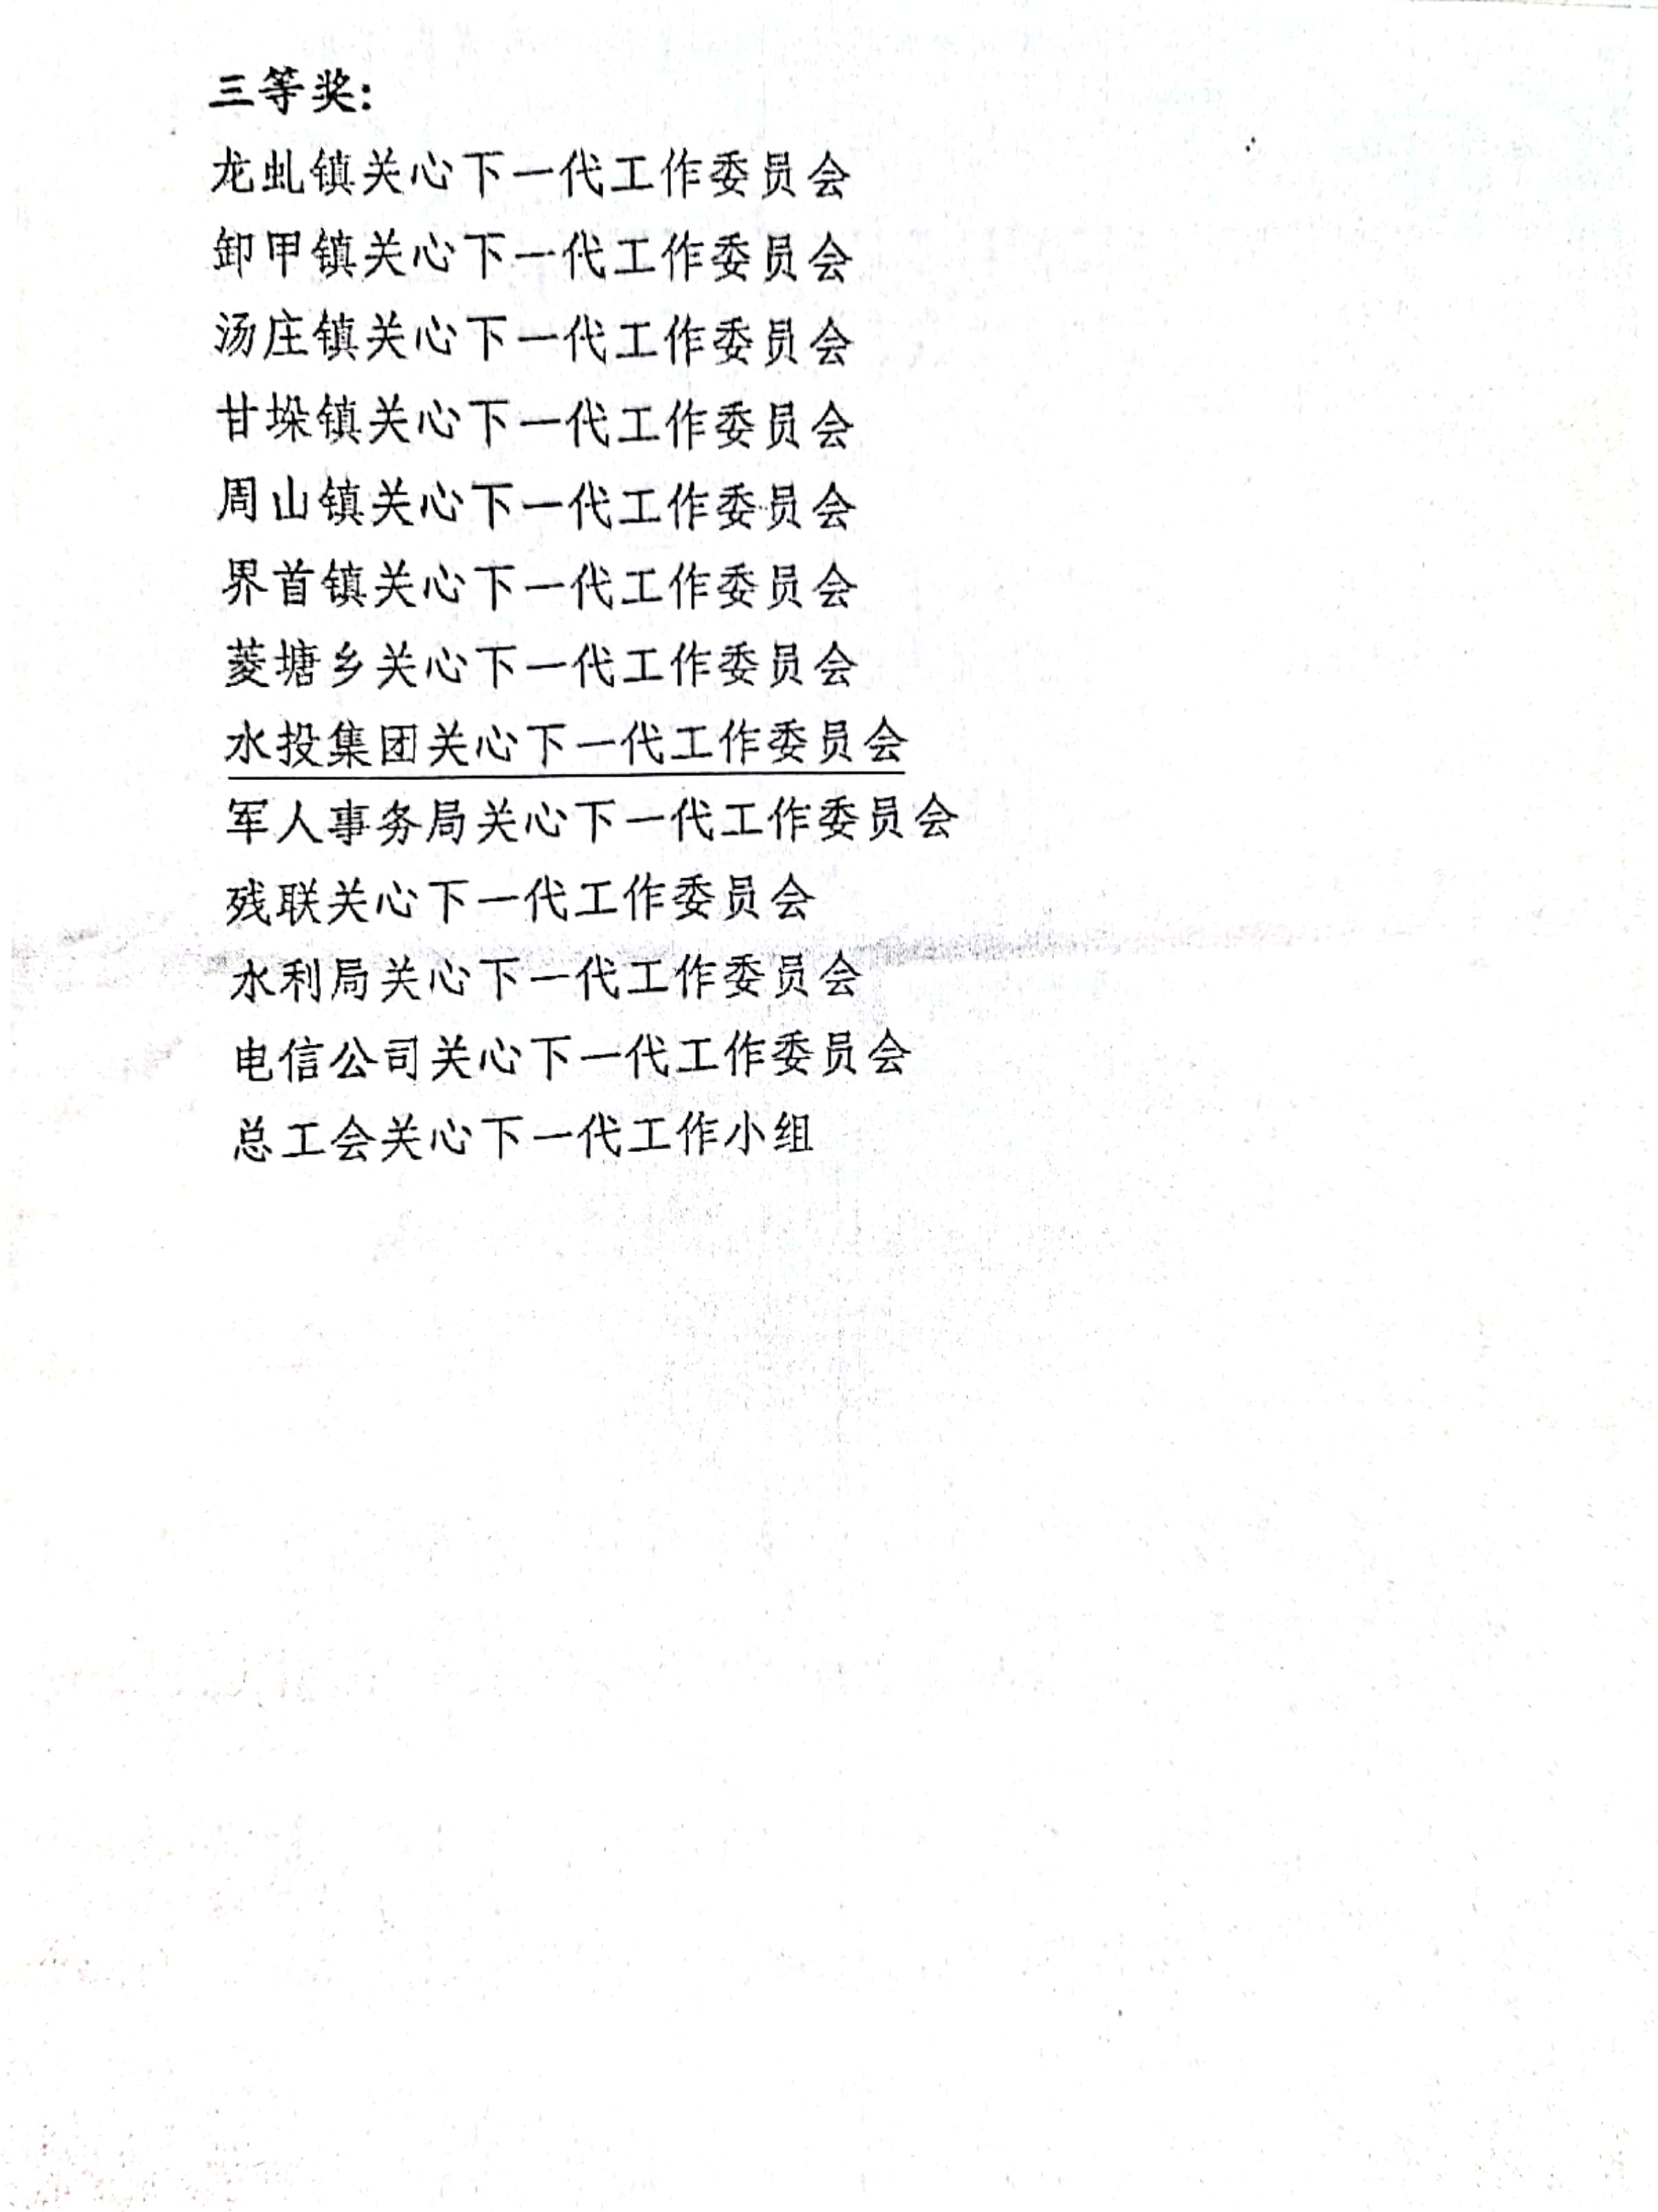 三等奖:
龙虬镇关心下一代工作委员会
卸甲镇关心下一代工作委员会
汤庄镇关心下一代工作委员会
甘垛镇关心下一代工作委员会
周山镇关心下一代工作委员会
界首镇关心下一代工作委员会
菱塘乡关心下一代工作委员会
水投集团关心下一代工作委员会
军人事务局关心下一代工作委员会
残联关心下一代工作委员会
水利局关心下一代工作委员会
电信公司关心下一代工作委员会
总工会关心下一代工作小组